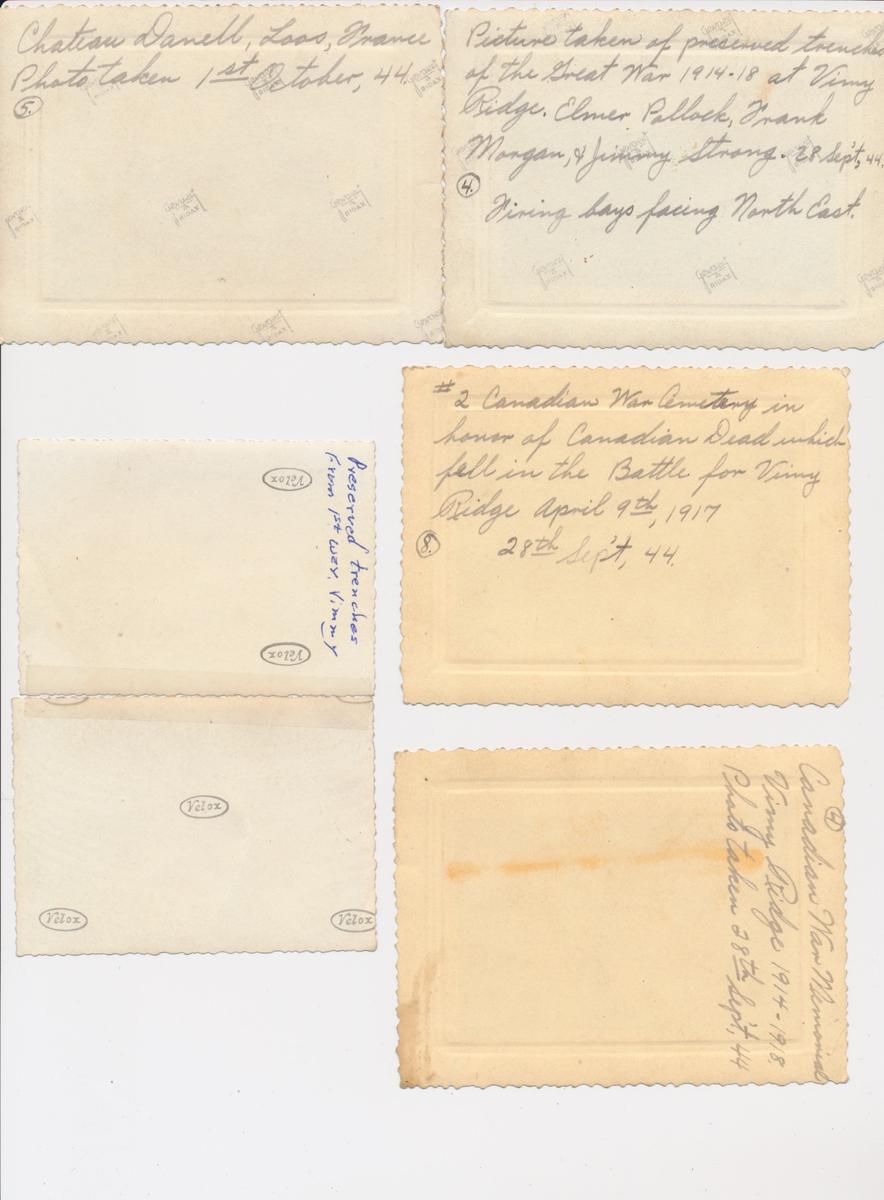 Chateau Danell, Loos, France
Photo taken 1st October, 44.
5.
Picture taken of preserved trenches
of the Great War 1914-18 at Vimy
Ridge. Elmer Pollock, Frank
Morgan, & Jimmy Strong. 28 Sep't, 44.
4.
Firing bays facing North East.
GEVAERT
RIDAX
Preserved trenches
From 1st war. Vimmy
Velox
Velox
#2 Canadian War Cemetery in
honor of Canadian Dead which
fell in the Battle for Vimy
Ridge April 9th, 1917
28th Sep't, 44.
Velox
Velox
Velox
Canadian War Memorial
Vimy Ridge 1914-1918
Photo taken 28th Sep't, 44